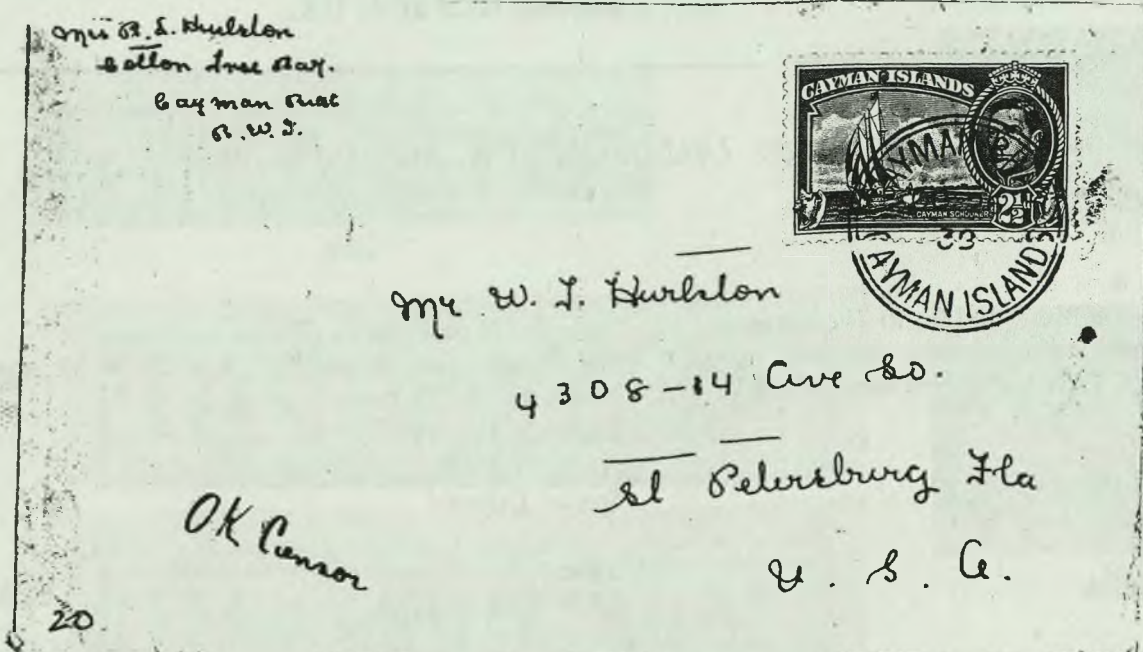 Mrs R. L. Hurlston
Cotton Tree Bay.
Cayman Brac
B. W. I.
CAYMAN ISLANDS
CAYMAN SCHOONER
2½
CAYMAN
39
CAYMAN ISLANDS
Mr W. I. Hurlston
4308-14 Ave So.
St Petersburg Fla
U. S. A.
OK Censor
20